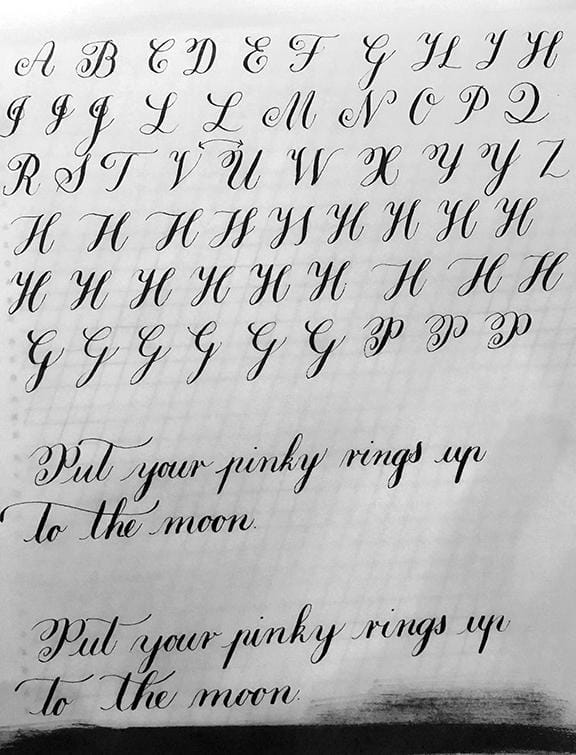 A B C D E F G H I H
J J J L L M N O P Q
R S T V U W X Y Y Z
H H H H H H H H H
H H H H H H H H H
G G G G G G P P P
Put your pinky rings up
to the moon.
Put your pinky rings up
to the moon.